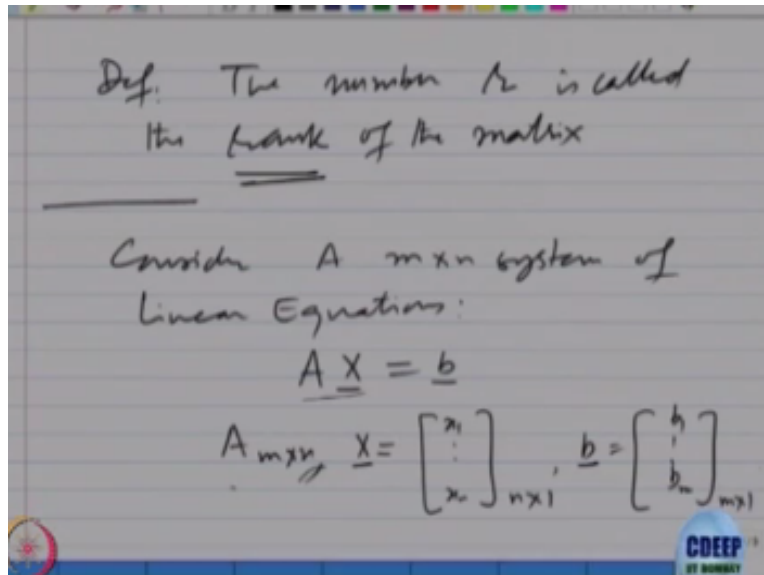 Def. The number r is called
the rank of the matrix
Consider A m×n system of
Linear Equations:
A X = b
A m×n, X = [x₁ ⋮ xₙ] n×1, b = [b₁ ⋮ bₘ] m×1
CDEEP
IIT BOMBAY